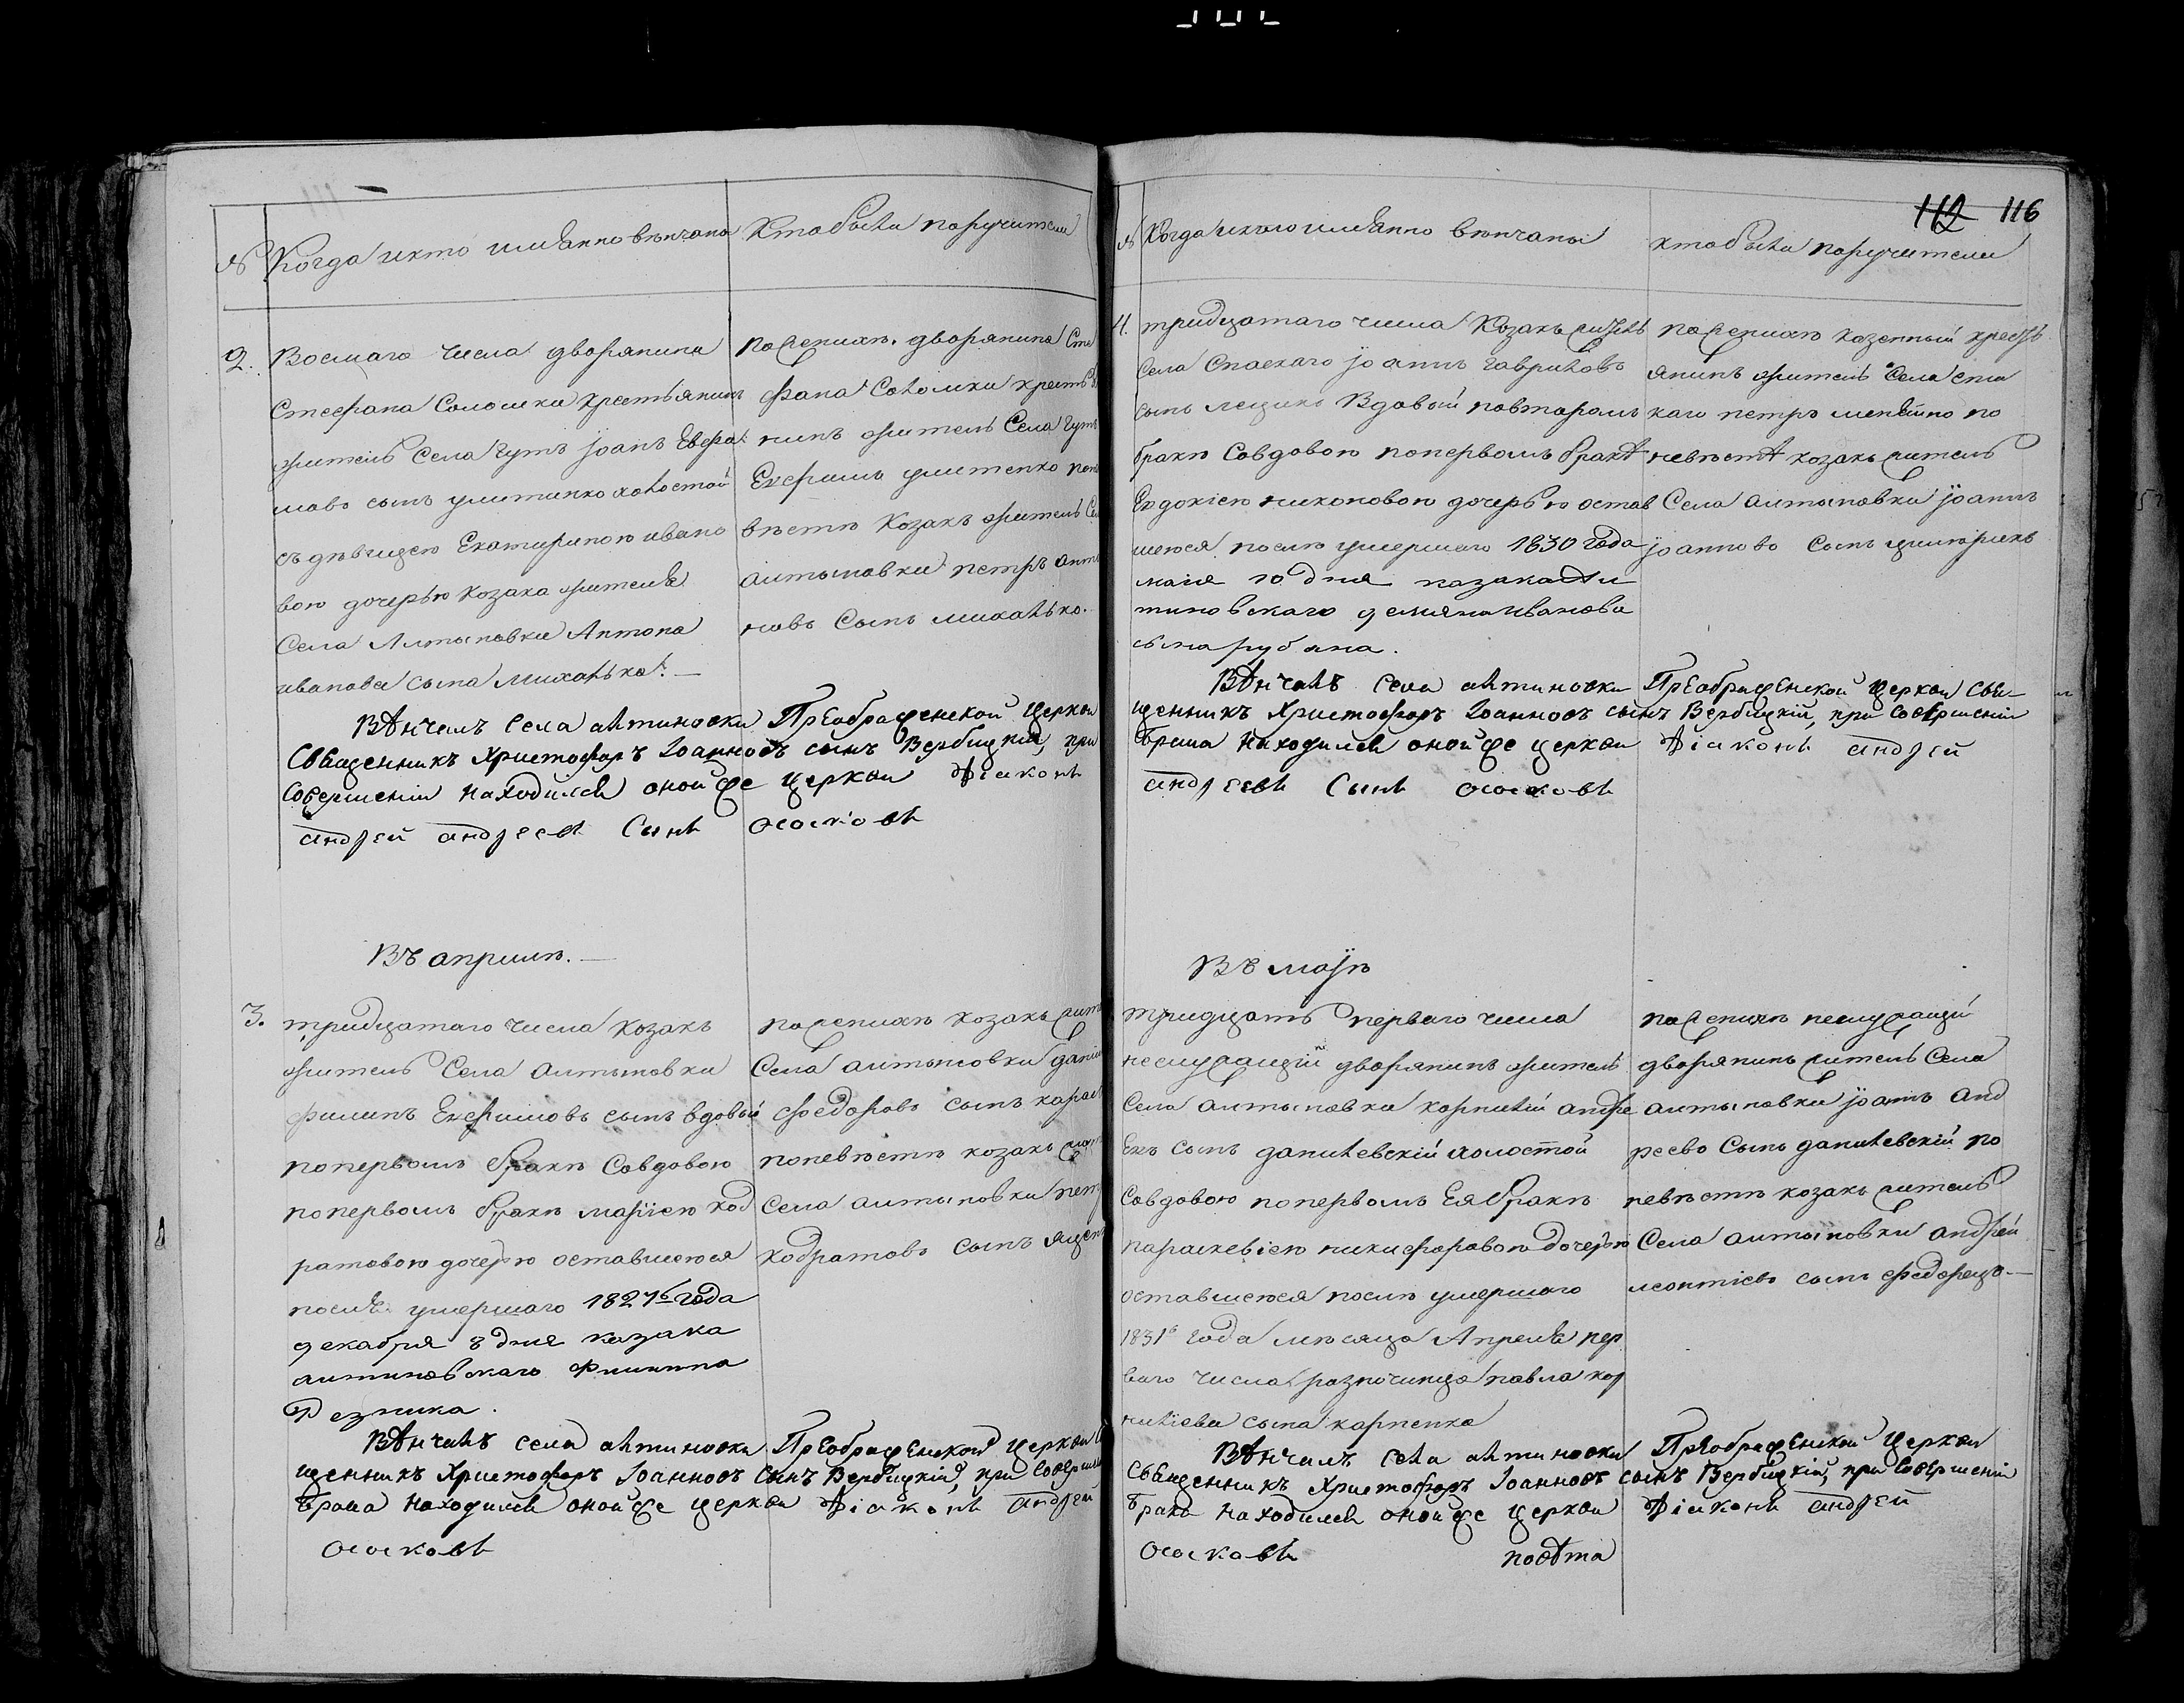 № Когда и кто имѣнно вѣнчаны
Кто были поручители
2. Восмаго числа дворянина
Стефана Соломки крестьянинъ
житель Села Гутъ Іоанъ Евфи
мовъ сынъ улитинко холостой
съ дѣвицею Екатириною ивано
вою дочерью козака жителя
Села Алтыновки Антона
иванова сына Михалька. —
по женихѣ. дворянина Сте
фана Соломки крестья
нинъ житель Села Гутъ
Ехфимъ улитенко по не
вѣстѣ Козакъ житель Се
алтыновки петръ анто
новъ Сынъ михалько.
Вѣнчалъ Села алтиновки Преображенской Церкви
Священникъ Христофоръ Іоанновъ сынъ Вербицкій, при
Совершеніи находился оной же церкви Діяконъ
андрей андреевъ Сынъ ососковъ
Въ априлѣ. —
3. тридцатаго числа козакъ
житель Села алтыновки
филипъ Ехфимовъ сынъ вдовый
по первомъ бракѣ Совдовою
по первомъ бракѣ маріею код
ратовою дочерю оставшеюся
послѣ умершаго 1827го года
декабря 8 дня козака
алтиновскаго Филиппа
Резника.
по женихѣ козакъ жит
Села алтыновки даніи
федоровъ сынъ
по невѣстѣ козакъ
Села алтыновки пет
кодратовъ сынъ яцен
Вѣнчалъ села алтиновки Преображенской Церкви С
щенникъ Христофоръ Іоанновъ Сынъ Вербицкій, при Соверше
Брака находился оной же церкви Діяконъ андрей
ососковъ
112 116
№ Когда и кто имѣнно вѣнчаны
кто были поручители
4. тридцатаго числа Козакъ житель
Села Спаскаго Іоаннъ гавриловъ
сынъ лещинъ Вдовый по второмъ
бракѣ Совдовою по первомъ бракѣ
Евдокіею никоновою дочерью остав
шеюся послѣ умершаго 1830 года
маія 10 дня козака ал
тиновскаго демяна иванова
сына рубана.
по женихѣ казенный кресть
янинъ житель Села спа
каго петръ по
невѣстѣ козакъ житель
Села алтыновки Іоаннъ
Іоанновъ Сынъ
Вѣнчалъ села алтиновки Преображенской Церкви Свя-
щенникъ Христофоръ Іоанновъ сынъ Вербицкій, при Совершеніи
Брака находился оной же церкви Діяконъ андрей
андреевъ Сынъ ососковъ
Въ маіѣ
тридцать перваго числа
неслужащій дворянинъ житель
Села алтыновки корнилій андре
евъ сынъ данилевскій холостой
Совдовою по первомъ Ея бракѣ
параскевіею никифоровою дочерю
оставшеюся послѣ умершаго
1831го года мѣсяца Апреля пер
ваго числа разночинца павла кор
ниліева сына карпенка
по женихѣ неслужащій
дворянинъ житель Села
алтыновки Іоаннъ анд
реевъ Сынъ данилевскій по
невѣстѣ козакъ житель
Села алтыновки андрей
леонтіевъ сынъ федорецъ. —
Вѣнчалъ села алтиновки Преображенской Церкви
Священникъ Христофоръ Іоанновъ сынъ Вербицкій, при Совершеніи
Брака находился оной же церкви Діяконъ андрей
ососковъ
повѣта